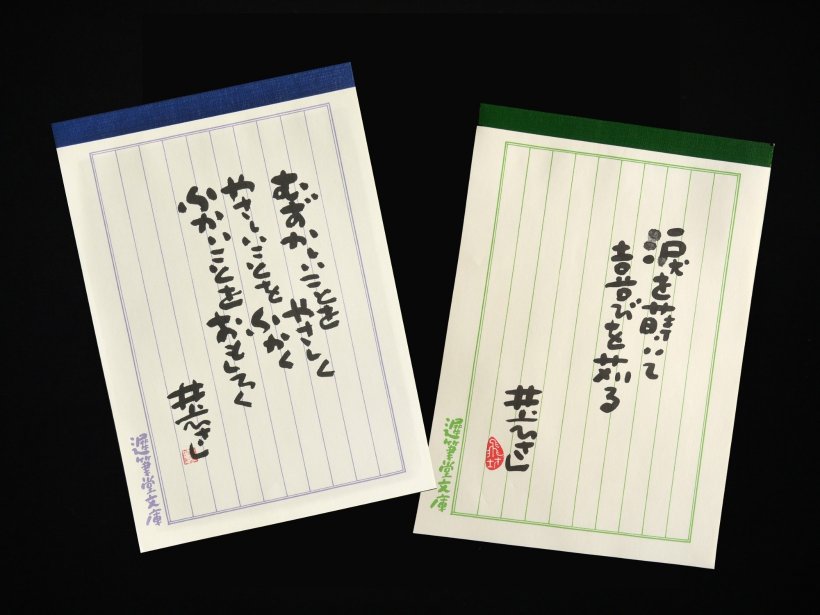 むずかしいことを やさしく
やさしいことを ふかく
ふかいことを おもしろく
井上ひさし
遅筆堂文庫
涙を蒔いて
喜びを苅る
井上ひさし
遅筆堂文庫